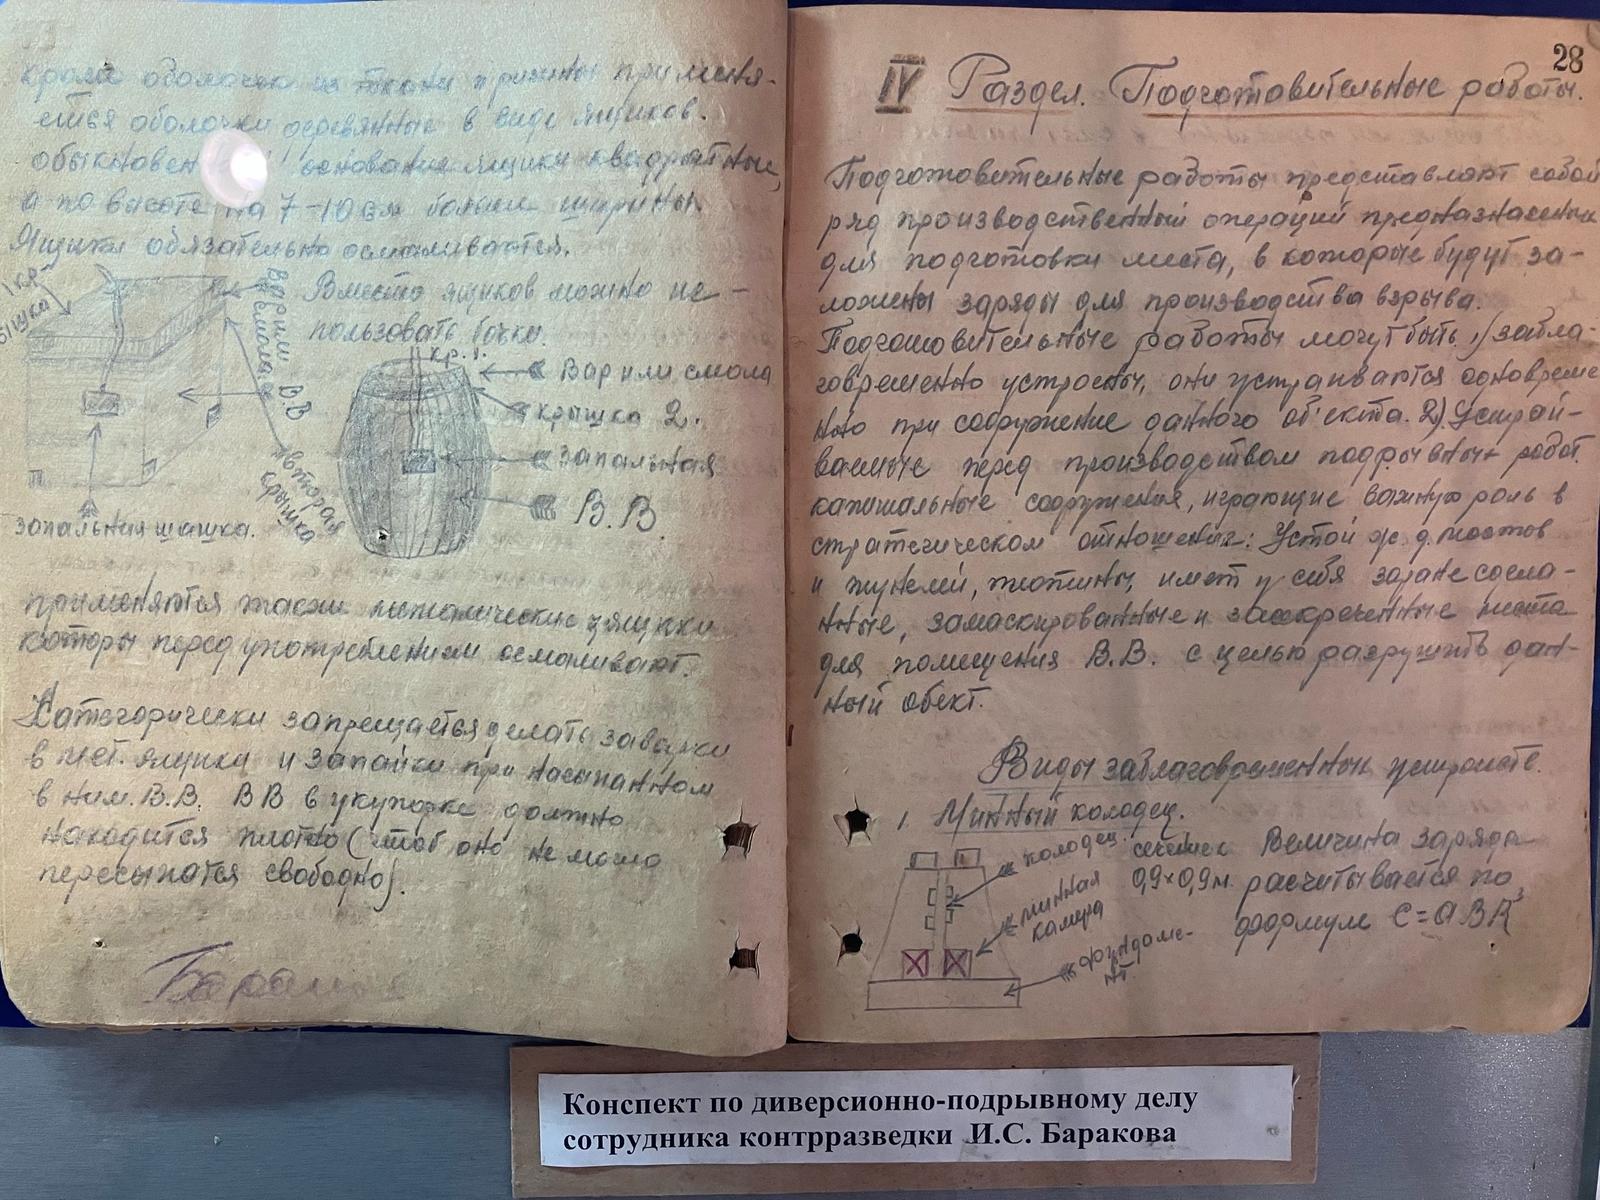 кроме оболочек из ткани применя-
ется оболочки деревянные в виде ящиков.
обыкновен основание ящики квадратные,
а по высоте на 7-10 см больше ширины.
Ящики обязательно осмаливаются.
1 кр
ышка
Варим
В.В
Вместо ящиков можно ис-
пользовать бочки.
кр. 1.
Вар или смола
крышка 2.
запальная
В.В
вторая
крышка
запальная шашка.
применяются также металические ящики
которы перед употреблением осмаливают.
Категорически запрещается делать заварки
в мет. ящики и запайки при насыпанном
в ним. В.В. ВВ в укупорке должно
находится плотно (чтоб оно не могло
пересыпатся свободно).
Бараков
28
IV Раздел. Подготовительные работы.
Подготовительные работы представляют собой
ряд производственный операций предназначеных
для подготовки места, в которые будут за-
ложены заряды для производства взрыва.
Подготовительные работы могут быть 1) забла-
говременно устроены, они устраиваются одновреме
нно при сооружение данного об'екта. 2) Устрай-
ваемые перед производством подрывных работ.
капитальные сооружения, играющие важную роль в
стратегическом отношении: Устой ж.д. мостов
и тунелей, плотины, имет у себя заране сдела-
нные, замаскированные и засекреченные места
для помещения В.В. с целью разрушить дан-
ный обект.
Виды заблаговременных устройств.
1. Минный колодец.
колодец
сечением
0,9×0,9 м.
минная
камера
фундаме-
нт.
Величина заряда
расчитывается по
формуле C=ABR³
Конспект по диверсионно-подрывному делу
сотрудника контрразведки И.С. Баракова